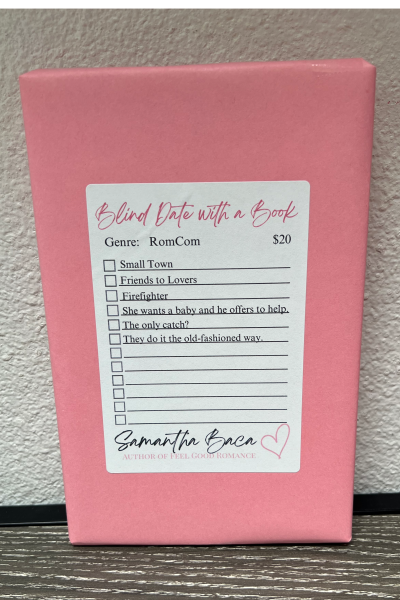 Blind Date with a Book
Genre: RomCom $20
Small Town
Friends to Lovers
Firefighter
She wants a baby and he offers to help.
The only catch?
They do it the old-fashioned way.
Samantha Baca
AUTHOR OF FEEL GOOD ROMANCE